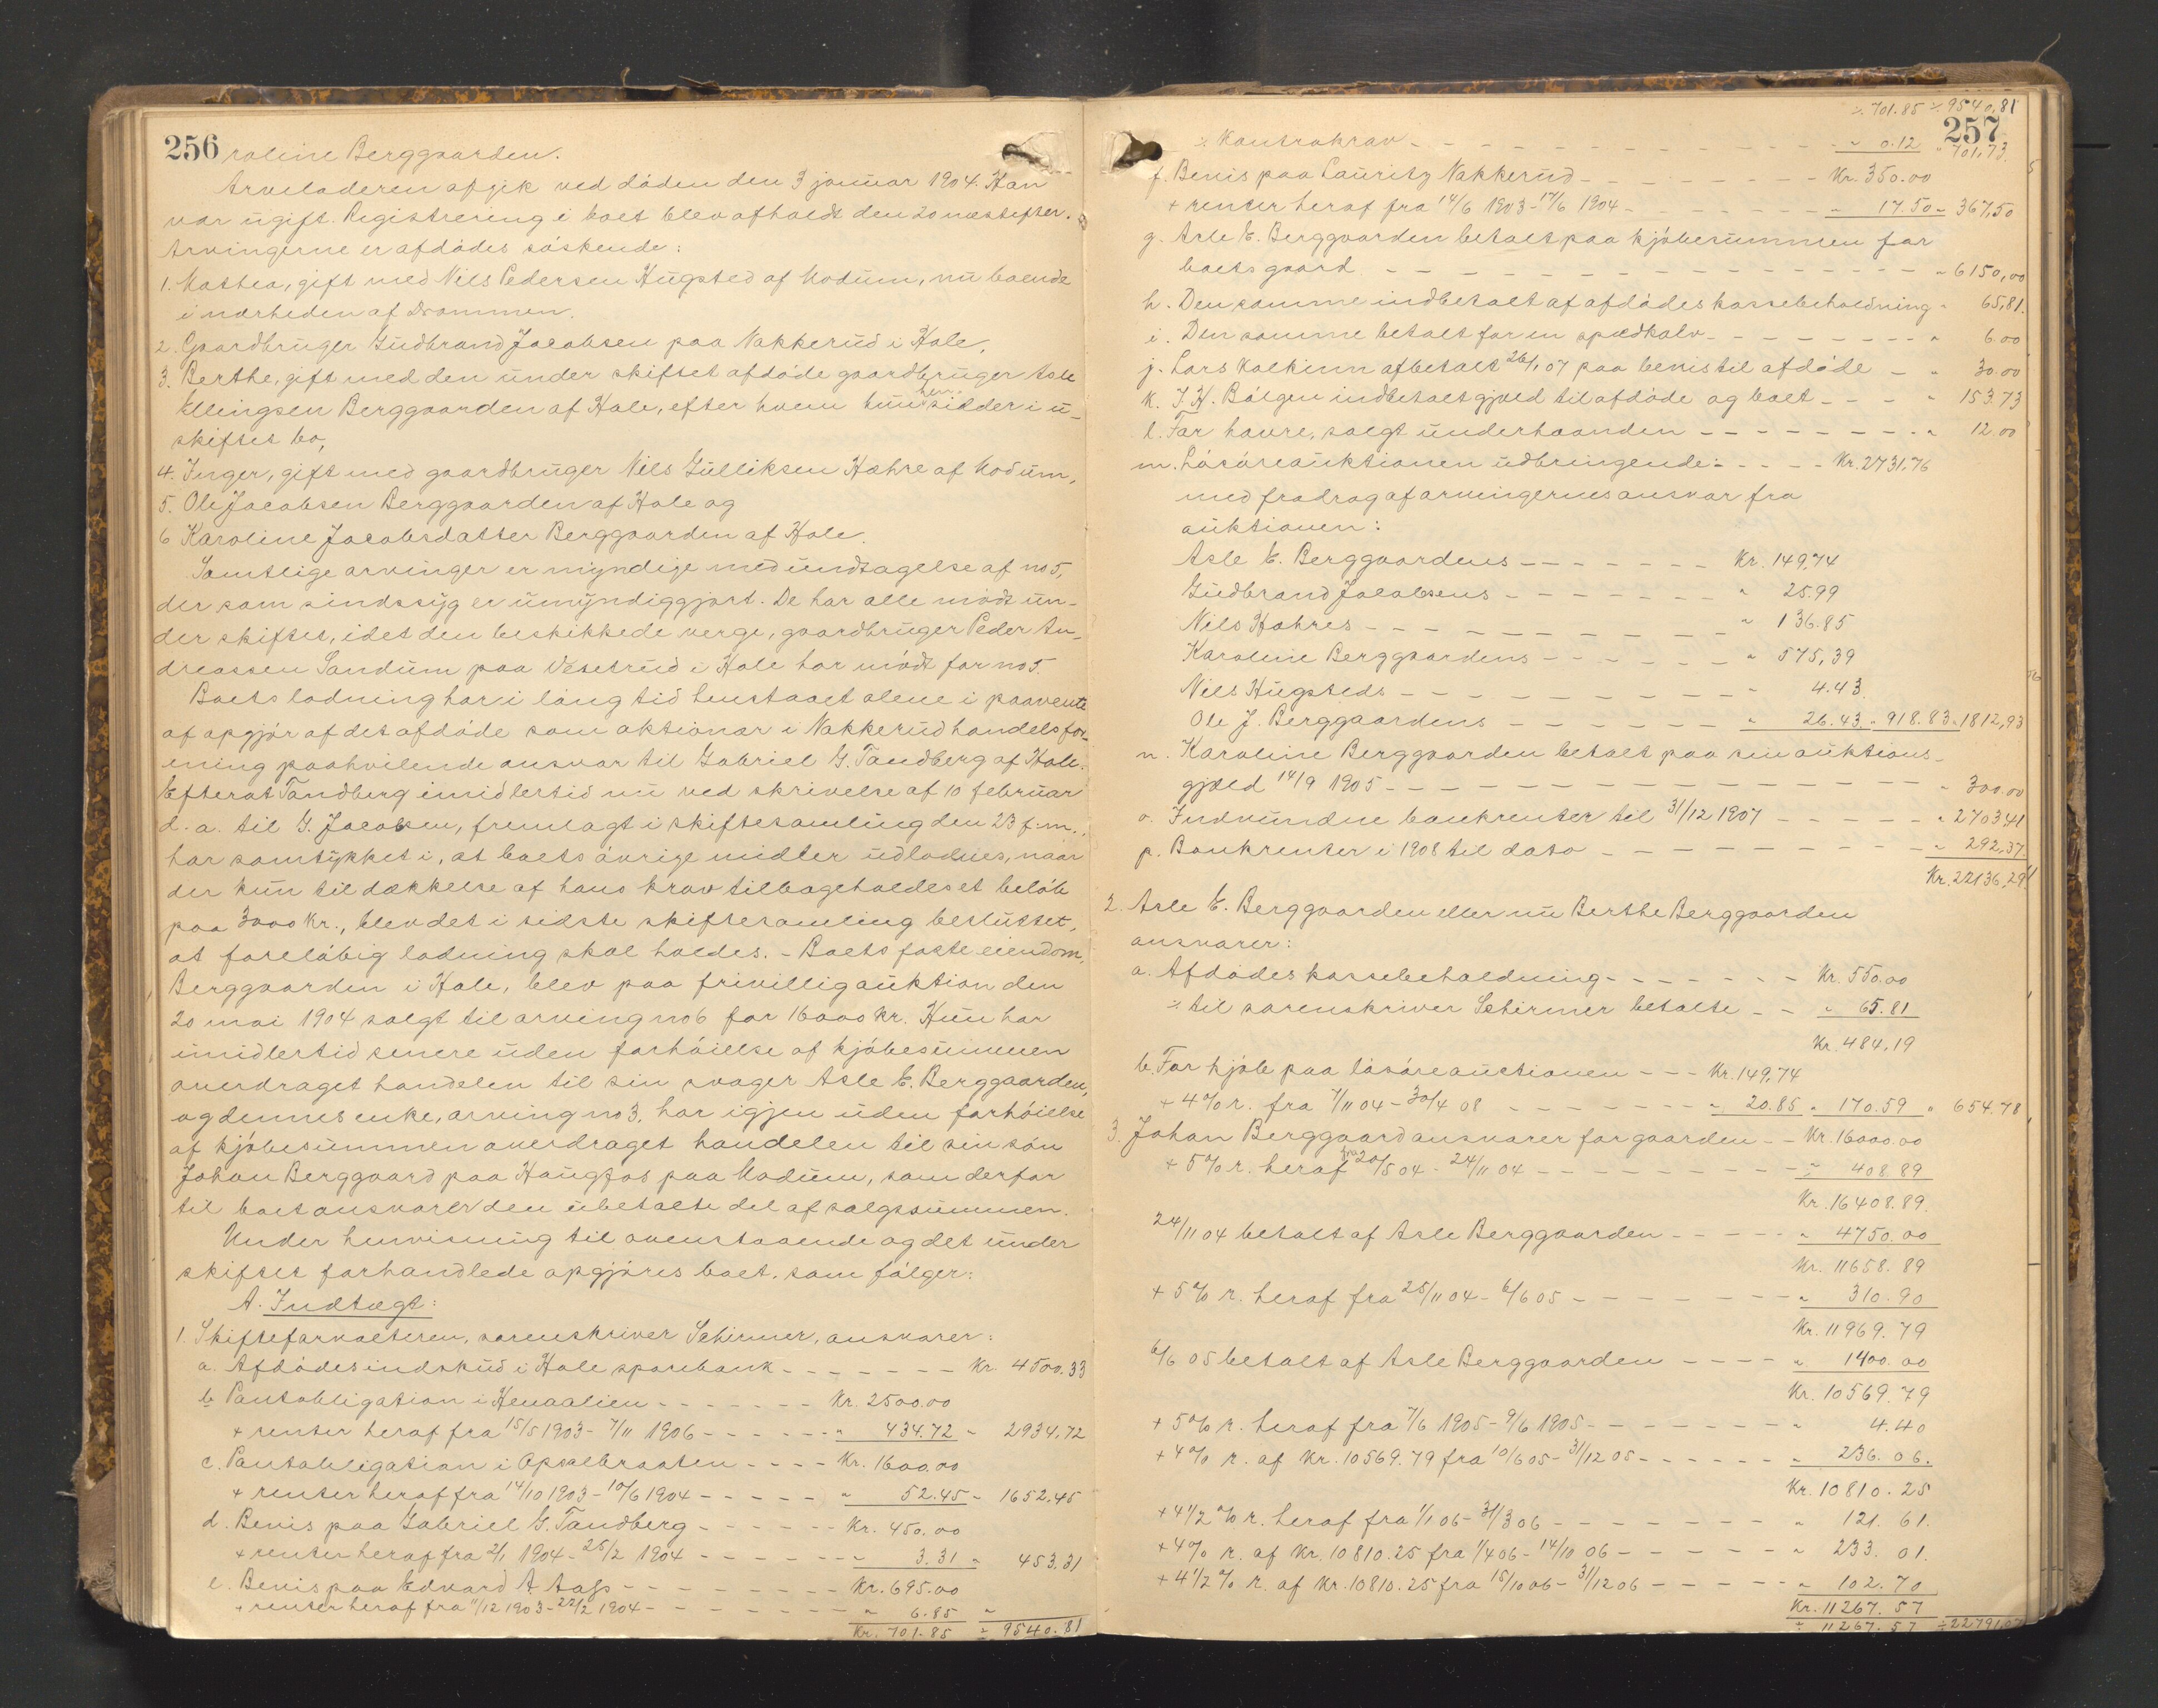 256
roline Berggaarden.
Arveladeren afgik ved døden den 3 januar 1904. Han
var ugift. Registrering i boet blev afholdt den 20 næstefter.
Arvingerne er afdødes søskende:
1. Mathea, gift med Nils Pedersen Hugsted af Modum, nu boende
i nærheden af Drammen.
2. Gaardbruger Gudbrand Jacobsen paa Nakkerud i Hole,
3. Berthe, gift med den under skiftet afdøde gaardbruger Asle
Ellingsen Berggaarden af Hole, efter hvem hun hen sidder i u-
skiftet bo,
4. Inger, gift med gaardbruger Nils Gulliksen Hæhre af Modum,
5. Ole Jacobsen Berggaarden af Hole og
6 Karoline Jacobsdatter Berggaarden af Hole.
Samtlige arvinger er myndige med undtagelse af no 5,
der som sindssyg er umyndiggjort. De har alle mødt un-
der skiftet, idet den beskikkede verge, gaardbruger Peder An-
dreassen Sandum paa Vesetrud i Hole har mødt for no 5.
Boets lodning har i lang tid henstaaet alene i paavente
af opgjør af det afdøde som aktionær i Nakkerud handelsfor-
ening paahvilende ansvar til Gabriel G. Tandberg af Hole.
Efterat Tandberg imidlertid nu ved skrivelse af 10 februar
d. a. til G. Jacobsen, fremlagt i skiftesamling den 23 f. m.,
har samtykket i, at boets øvrige midler udloddes, naar
der kun til dækkelse af hans krav tilbageholdes et beløb
paa 3000 Kr., blev det i sidste skiftesamling besluttet,
at foreløbig lodning skal holdes. - Boets faste eiendom,
Berggaarden i Hole, blev paa frivillig auktion den
20 mai 1904 solgt til arving no 6 for 16000 Kr. Hun har
imidlertid senere uden forhøielse af kjøbesummen
overdraget handelen til sin svager Asle E. Berggaarden,
og dennes enke, arving no 3, har igjen uden forhøielse
af kjøbesummen overdraget handelen til sin søn
Johan Berggaard paa Haugfos paa Modum, som derfor
til boet ansvarer den ubetalte del af salgssummen.
Under henvisning til ovenstaaende og det under
skiftet forhandlede opgjøres boet, som følger:
A. Indtægt:
1. Skifteforvalteren, sorenskriver Schirmer, ansvarer:
a. Afdødes indskud i Hole sparebank - - - - - - Kr. 4500.33
b. Pantobligation i Henaalien - - - - - - Kr. 2500.00
+ renter heraf fra 15/5 1903 - 7/11 1906 - - - - - " 434.72 " 2934.72
c. Pantobligation i Opsalbraaten - - - - Kr. 1600.00
+ renter heraf fra 14/10 1903 - 10/6 1904 - - - - - " 52.45 " 1652.45
d. Bevis paa Gabriel G. Tandberg - - - - - Kr. 450.00
+ renter heraf fra 2/1 1904 - 25/2 1904 - - - - - " 3.31 " 453.31
e. Bevis paa Edvard A Aas - - - - - - - - Kr. 695.00
+ renter heraf fra 11/12 1903 - 22/2 1904 - - - - - - - " 6.85 "
Kr. 701.85 ÷ 9540.81
÷ 701.85 ÷ 9540.81
257
÷ Kontrakrav - - - - - - - - - - - - " 0.12 " 701.73
f. Bevis paa Lauritz Nakkerud - - - - - - - - Kr. 350.00
+ renter heraf fra 14/6 1903 - 17/6 1904 - - - - - - - " 17.50 " 367.50
g. Asle E. Berggaarden betalt paa kjøbesummen for
boets gaard - - - - - - - - - - - - - - - - " 6150,00
h. Den samme indbetalt af afdødes kassebeholdning " 65,81.
i. Den samme betalt for en spædkalv - - - - - - - - " 6.00
j. Lars Kalkinn afbetalt 26/1 07 paa bevis til afdøde - " 30.00
k. J. H. Bølgen indbetalt gjæld til afdøde og boet - - - " 153.73
l. For havre, solgt underhaanden - - - - - - - - " 12.00
m. Løsøreauktionen udbringende: - - - - Kr. 2731.76
med fradrag af arvingernes ansvar fra
auktionen:
Asle E. Berggaardens - - - - - - - Kr. 149,74
Gudbrand Jacobsens - - - - - - - - " 25.99
Nils Hæhres - - - - - - - - - - - " 136.85
Karoline Berggaardens - - - - - - " 575,39
Nils Hugsteds - - - - - - - - - - " 4.43.
Ole J. Berggaardens - - - - - - - " 26.43. " 918.83 " 1812,93
n. Karoline Berggaarden betalt paa sin auktions-
gjæld 14/9 1905 - - - - - - - - - - - - - - - " 300.00
o. Indvundne bankrenter til 31/12 1907 - - - - - - " 2703.41
p. Bankrenter i 1908 til dato - - - - - - - - - - " 292,37.
Kr. 22136,29
2. Asle E. Berggaarden eller nu Berthe Berggaarden
ansvarer:
a. Afdødes kassebeholdning - - - - - - Kr. 550.00
÷ til sorenskriver Schirmer betalte - - " 65.81
Kr. 484.19
b. For kjøb paa løsøreauctionen - - - Kr. 149,74
+ 4% r. fra 7/11 04 - 30/4 08 - - - - - - - - " 20.85 " 170.59 " 654.78
3. Johan Berggaard ansvarer for gaarden - - Kr. 16000.00
+ 5% r. heraf fra 20/5 04 - 24/11 04 - - - - - - - - - " 408.89
Kr. 16408.89.
24/11 04 betalt af Asle Berggaarden - - - - - " 4750.00
Kr. 11658.89
+ 5% r. heraf fra 25/11 04 - 6/6 05 - - - - - - - - " 310.90
Kr. 11969.79
6/6 05 betalt af Asle Berggaarden - - - - " 1400.00
Kr. 10569.79
+ 5% r. heraf fra 7/6 1905 - 9/6 1905 - - - - - - - " 4.40
+ 4% r. af Kr. 10569.79 fra 10/6 05 - 31/12 05 - - - - - - " 236.06.
Kr. 10810.25
+ 4 1/2 % r. heraf fra 1/1 06 - 31/3 06 - - - - - - - - " 121.61.
+ 4% r. af Kr. 10810.25 fra 1/4 06 - 14/10 06 - - - - - " 233.01.
+ 4 1/2 % r. af Kr. 10810.25 fra 15/10 06 - 31/12 06 - - - - - " 102.70
Kr. 11267.57
÷ 11267.57 ÷ 22791.07